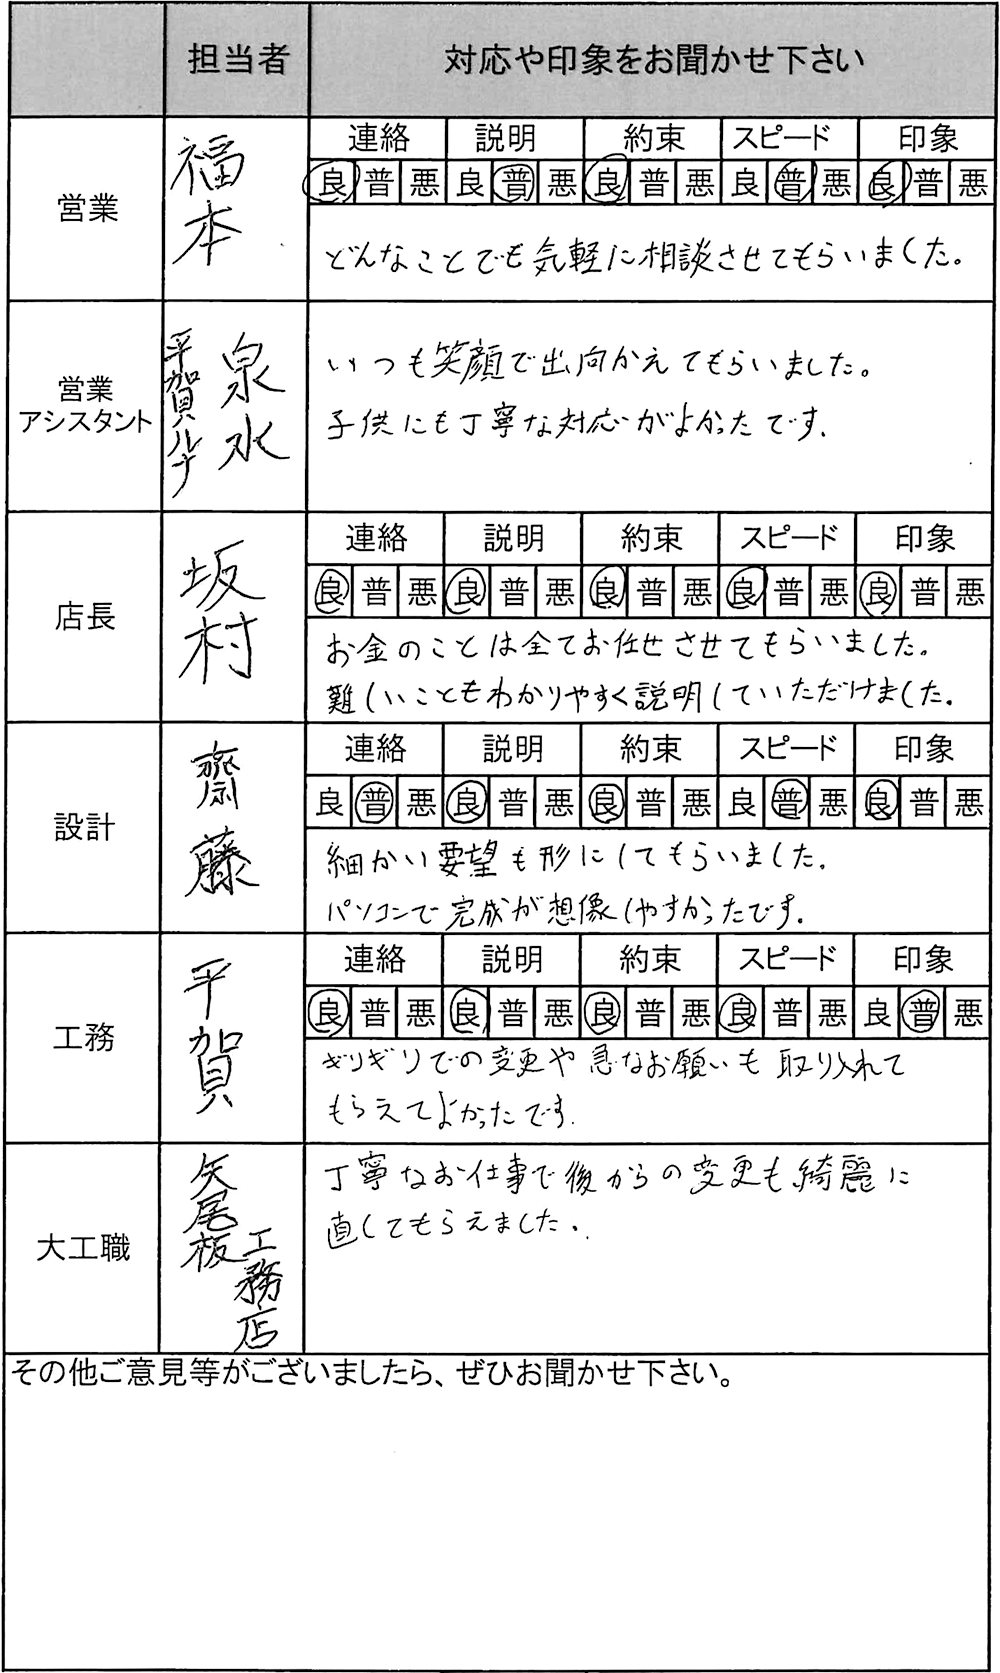 担当者 対応や印象をお聞かせ下さい
営業 福本
連絡 説明 約束 スピード 印象
良 普 悪 良 普 悪 良 普 悪 良 普 悪 良 普 悪
どんなことでも気軽に相談させてもらいました。
営業アシスタント 泉水 平賀ルナ
いつも笑顔で出向かえてもらいました。
子供にも丁寧な対応がよかったです.
店長 坂村
連絡 説明 約束 スピード 印象
良 普 悪 良 普 悪 良 普 悪 良 普 悪 良 普 悪
お金のことは全てお任せさせてもらいました。
難しいこともわかりやすく説明していただけました.
設計 齋藤
連絡 説明 約束 スピード 印象
良 普 悪 良 普 悪 良 普 悪 良 普 悪 良 普 悪
細かい要望も形にしてもらいました.
パソコンで完成が想像しやすかったです.
工務 平賀
連絡 説明 約束 スピード 印象
良 普 悪 良 普 悪 良 普 悪 良 普 悪 良 普 悪
ギリギリでの変更や急なお願いも取り入れて
もらえてよかったです.
大工職 矢尾板工務店
丁寧なお仕事で後からの変更も綺麗に
直してもらえました.
その他ご意見等がございましたら、ぜひお聞かせ下さい。